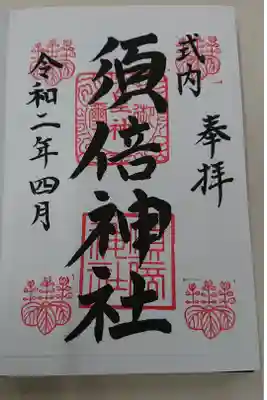 奉拝
式内
須倍神社
令和二年四月